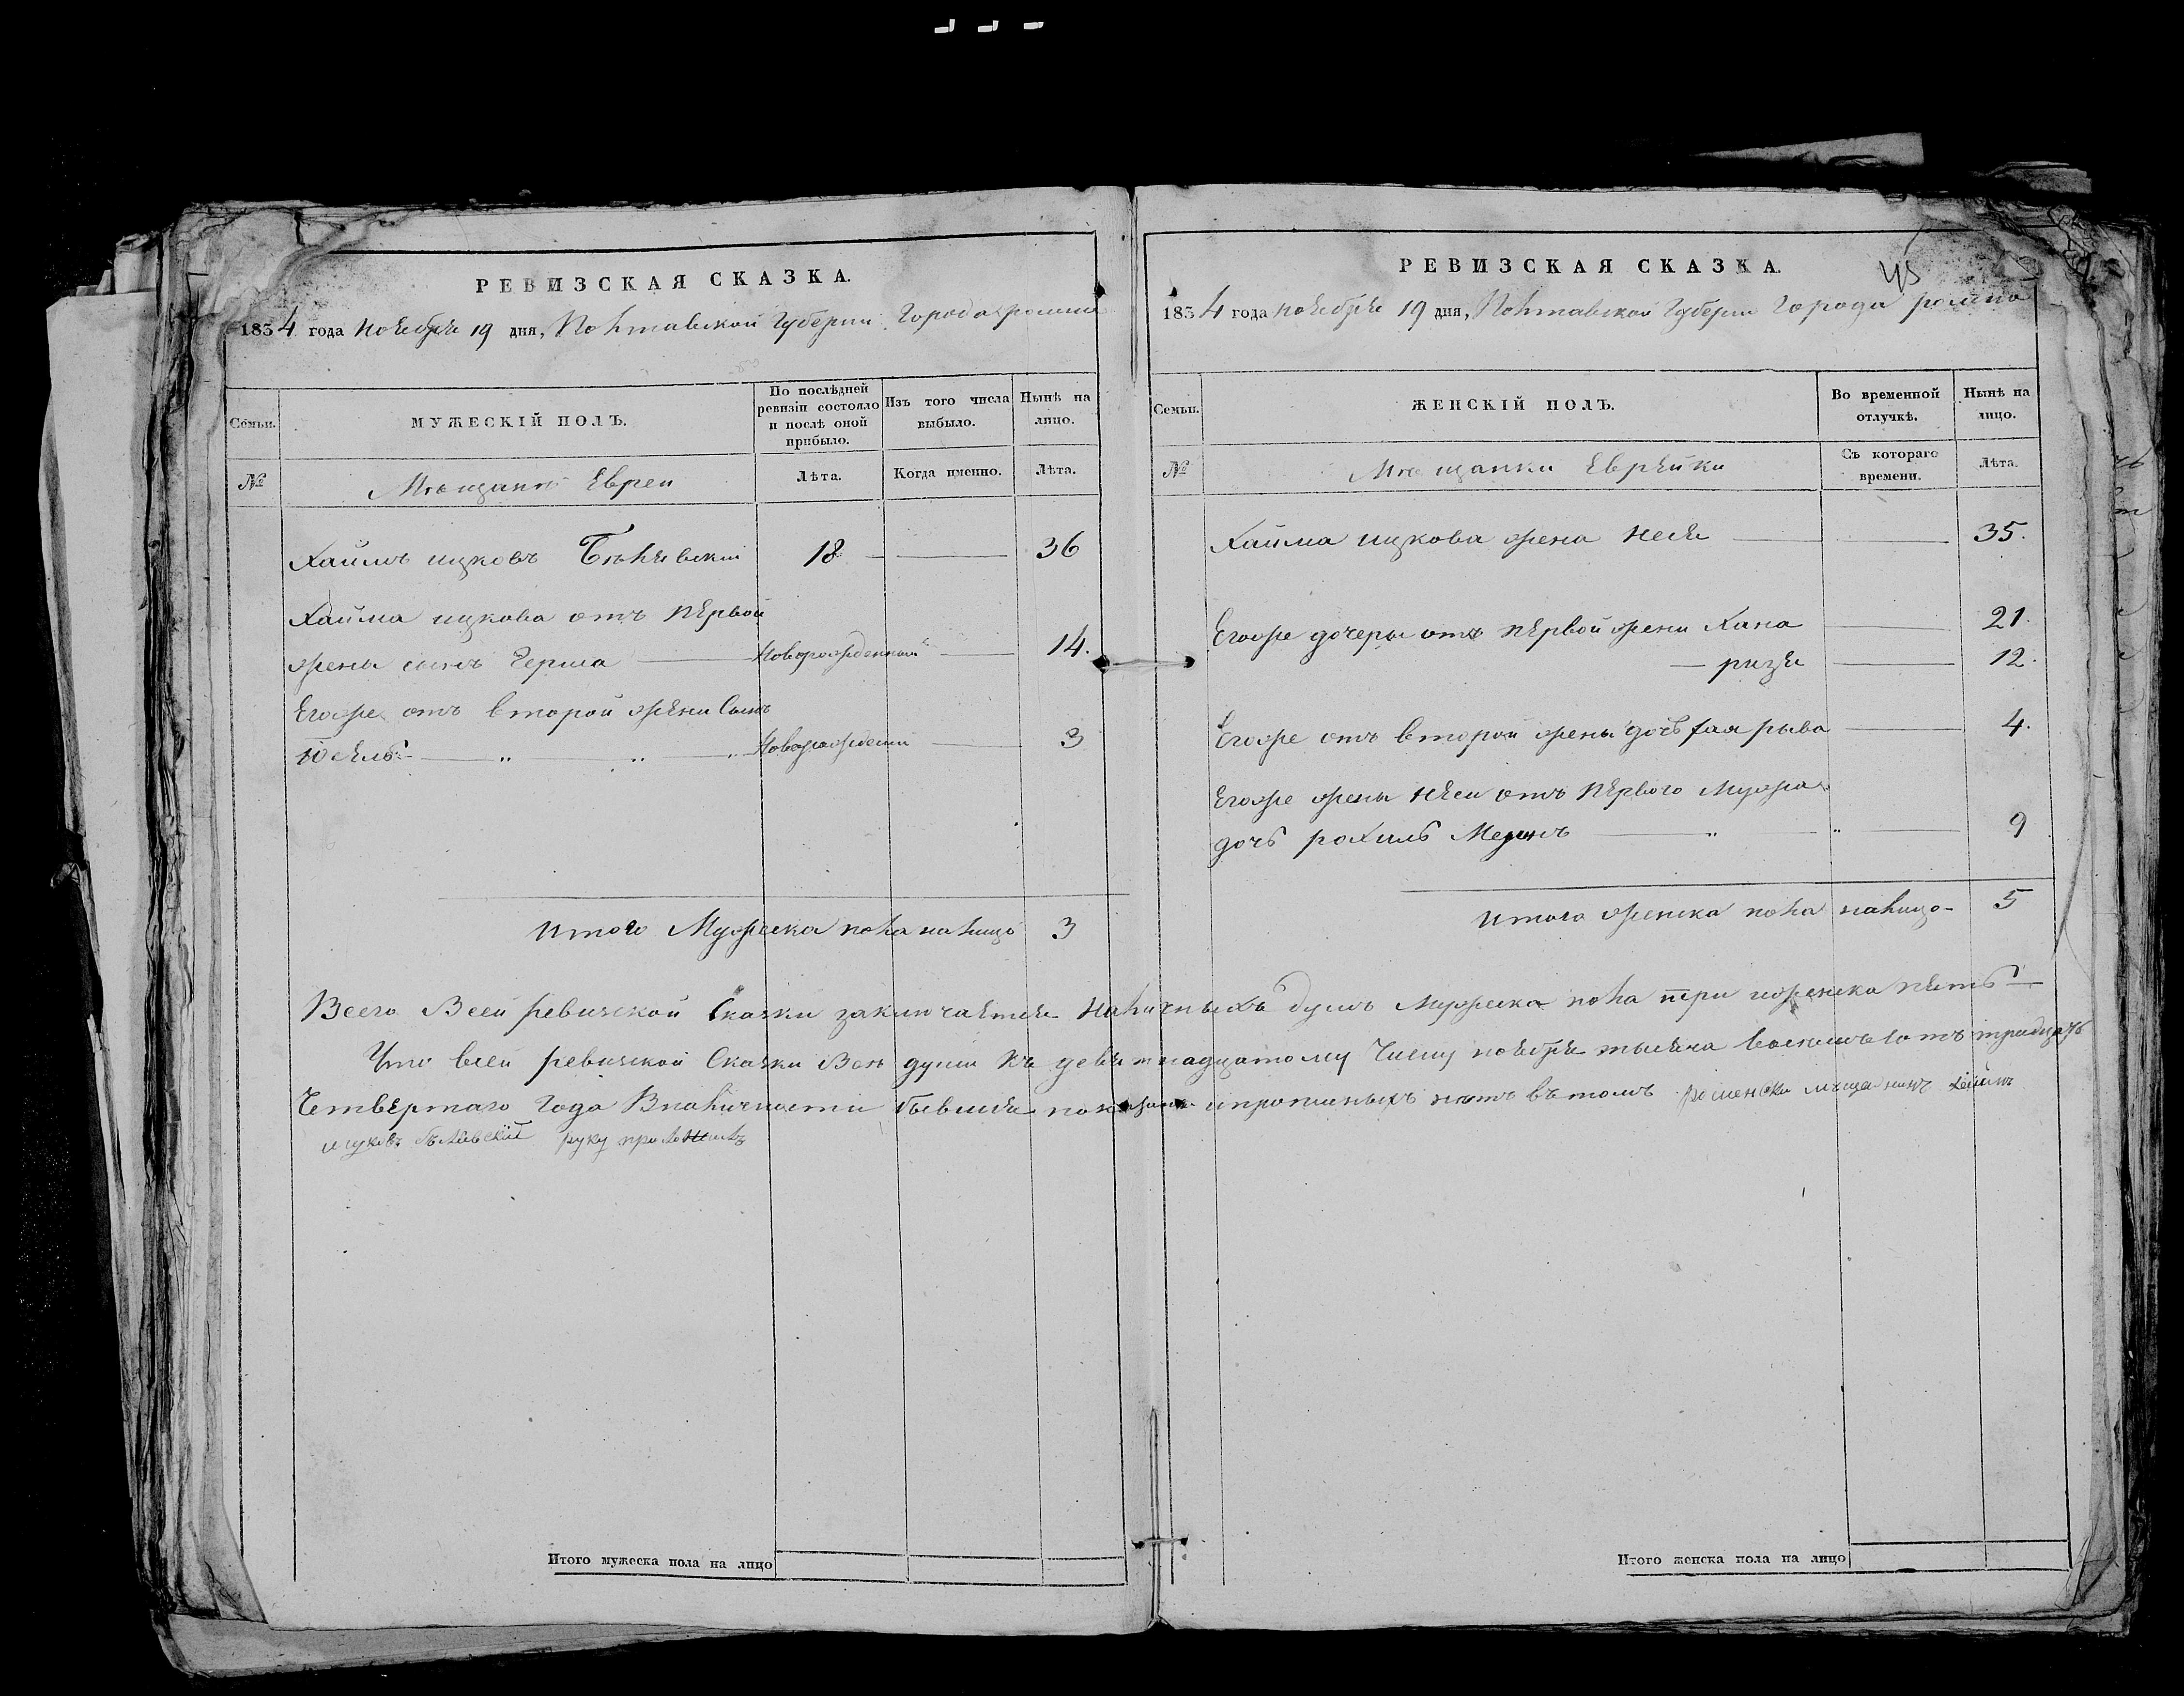 РЕВИЗСКАЯ СКАЗКА.
1834 года ноября 19 дня, Полтавской Губернии Города ромна
Семьи.
МУЖЕСКІЙ ПОЛЪ.
По послѣдней ревизіи состояло и послѣ оной прибыло.
Изъ того числа выбыло.
Нынѣ на лицо.
№
Мещане Евреи
Лѣта.
Когда именно.
Лѣта.
Хаимъ ицковъ Бѣлявскій 18 36
Хаима ицкова отъ первой
жены сынъ Герша Новорожденный 14.
Егоже отъ второй жены Сынъ
Юсель Новорожденный 3
итого Мужеска пола налицо 3
РЕВИЗСКАЯ СКАЗКА.
45
1834 года ноября 19 дня, Полтавской Губернии Города ромна
Семьи.
ЖЕНСКІЙ ПОЛЪ.
Во временной отлучкѣ.
Нынѣ на лицо.
№
Мещанки Еврейки
Съ котораго времени.
Лѣта.
Хаима ицкова жена неся 35.
Егоже дочеры отъ первой жены Хана 21.
ризя 12.
Егоже отъ второй жены дочь рыва 4.
Егоже жены неси отъ первого Мужа
дочь рохиль 9
итого женска пола налицо 5
Всего Всей ревизской Сказки заключается наличныхъ душъ Мужеска пола три и женска пять
Что всей ревизской Сказки Все души къ девятнадцатому Числу ноября тысяча восемьсотъ тридцать
Четвертаго Года Вналичности бывшия показаны и нетъ въ томъ роменски мещанинъ хаимъ
ицковъ бѣлявский руку приложилъ
Итого мужеска пола на лицо
Итого женска пола на лицо